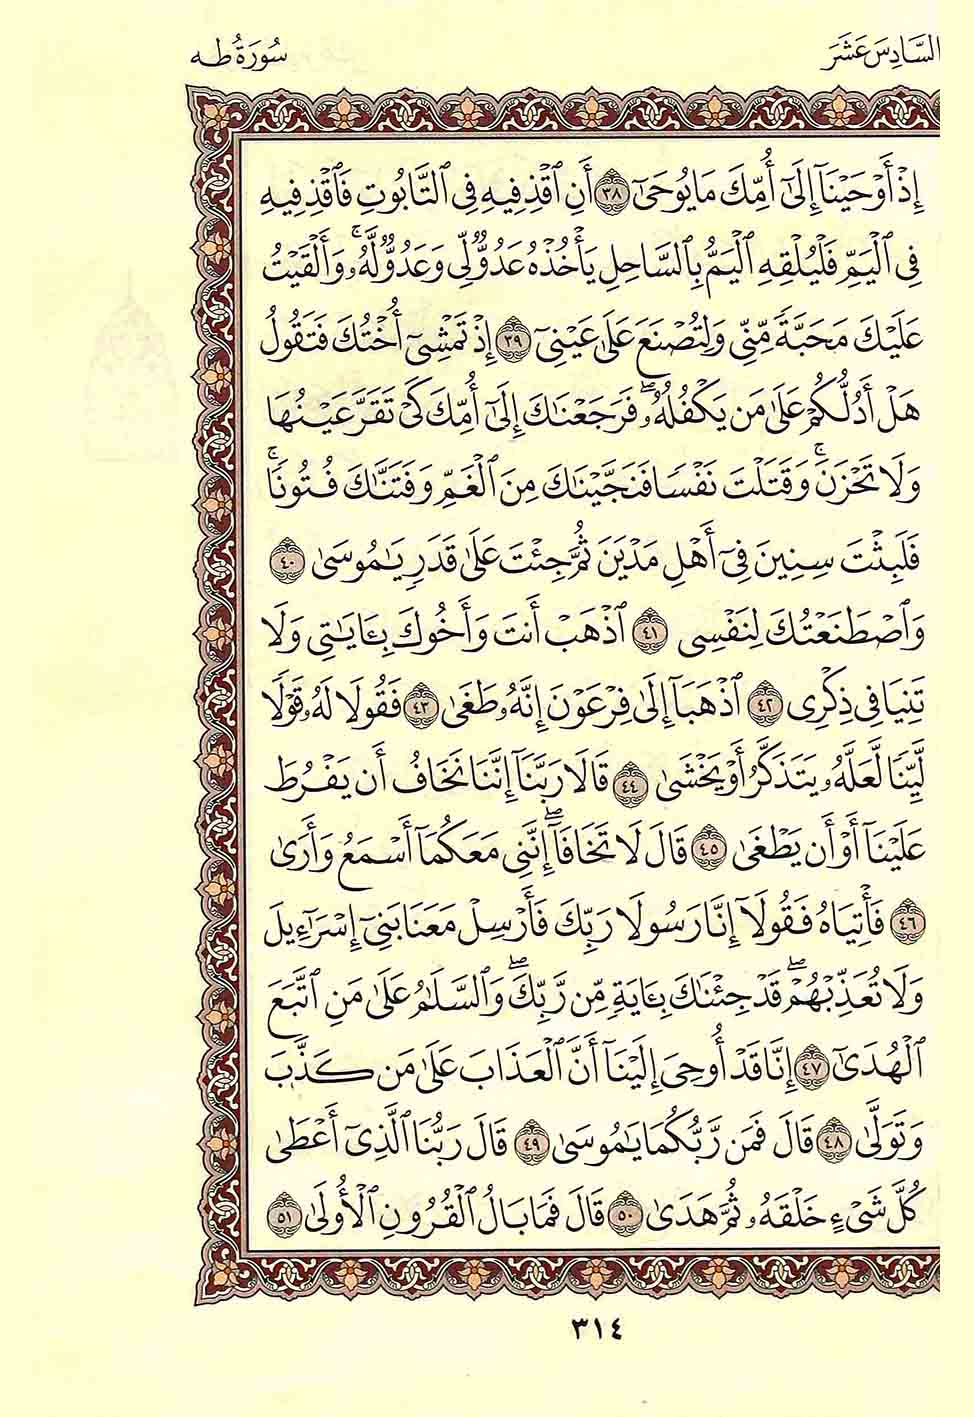 السَّادِسَ عَشَرَ
سُورَةُ طه
إِذْ أَوْحَيْنَآ إِلَىٰٓ أُمِّكَ مَا يُوحَىٰٓ ٣٨ أَنِ ٱقْذِفِيهِ فِى ٱلتَّابُوتِ فَٱقْذِفِيهِ
فِى ٱلْيَمِّ فَلْيُلْقِهِ ٱلْيَمُّ بِٱلسَّاحِلِ يَأْخُذْهُ عَدُوٌّ لِّى وَعَدُوٌّ لَّهُۥ ۚ وَأَلْقَيْتُ
عَلَيْكَ مَحَبَّةً مِّنِّى وَلِتُصْنَعَ عَلَىٰ عَيْنِىٓ ٣٩ إِذْ تَمْشِىٓ أُخْتُكَ فَتَقُولُ
هَلْ أَدُلُّكُمْ عَلَىٰ مَن يَكْفُلُهُۥ ۖ فَرَجَعْنَٰكَ إِلَىٰٓ أُمِّكَ كَىْ تَقَرَّ عَيْنُهَا
وَلَا تَحْزَنَ ۚ وَقَتَلْتَ نَفْسًا فَنَجَّيْنَٰكَ مِنَ ٱلْغَمِّ وَفَتَنَّٰكَ فُتُونًا ۚ
فَلَبِثْتَ سِنِينَ فِىٓ أَهْلِ مَدْيَنَ ثُمَّ جِئْتَ عَلَىٰ قَدَرٍ يَٰمُوسَىٰ ٤٠
وَٱصْطَنَعْتُكَ لِنَفْسِى ٤١ ٱذْهَبْ أَنتَ وَأَخُوكَ بِـَٔايَٰتِى وَلَا
تَنِيَا فِى ذِكْرِى ٤٢ ٱذْهَبَآ إِلَىٰ فِرْعَوْنَ إِنَّهُۥ طَغَىٰ ٤٣ فَقُولَا لَهُۥ قَوْلًا
لَّيِّنًا لَّعَلَّهُۥ يَتَذَكَّرُ أَوْ يَخْشَىٰ ٤٤ قَالَا رَبَّنَآ إِنَّنَا نَخَافُ أَن يَفْرُطَ
عَلَيْنَآ أَوْ أَن يَطْغَىٰ ٤٥ قَالَ لَا تَخَافَآ ۖ إِنَّنِى مَعَكُمَآ أَسْمَعُ وَأَرَىٰ
٤٦ فَأْتِيَاهُ فَقُولَآ إِنَّا رَسُولَا رَبِّكَ فَأَرْسِلْ مَعَنَا بَنِىٓ إِسْرَٰٓءِيلَ
وَلَا تُعَذِّبْهُمْ ۖ قَدْ جِئْنَٰكَ بِـَٔايَةٍ مِّن رَّبِّكَ ۖ وَٱلسَّلَٰمُ عَلَىٰ مَنِ ٱتَّبَعَ
ٱلْهُدَىٰٓ ٤٧ إِنَّا قَدْ أُوحِىَ إِلَيْنَآ أَنَّ ٱلْعَذَابَ عَلَىٰ مَن كَذَّبَ
وَتَوَلَّىٰ ٤٨ قَالَ فَمَن رَّبُّكُمَا يَٰمُوسَىٰ ٤٩ قَالَ رَبُّنَا ٱلَّذِىٓ أَعْطَىٰ
كُلَّ شَىْءٍ خَلْقَهُۥ ثُمَّ هَدَىٰ ٥٠ قَالَ فَمَا بَالُ ٱلْقُرُونِ ٱلْأُولَىٰ ٥١
٣١٤